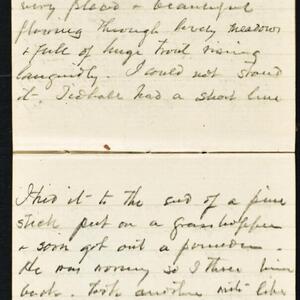 very placid & beautiful
flowing through lovely meadows
& full of huge trout rising
languidly. I could not stand
it. Tidball had a short line
I tied it to the end of a pine
stick put on a grasshopper
& soon got out a pounder.
He was wormy so I threw him
back. Took another